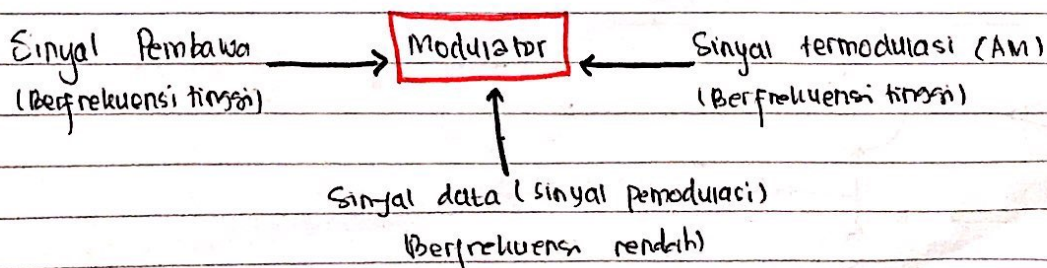 Sinyal Pembawa
(Berfrekuensi tinggi)
Modulator
Sinyal termodulasi (AM)
(Berfrekuensi tinggi)
Sinyal data (sinyal pemodulasi)
(Berfrekuensi rendah)